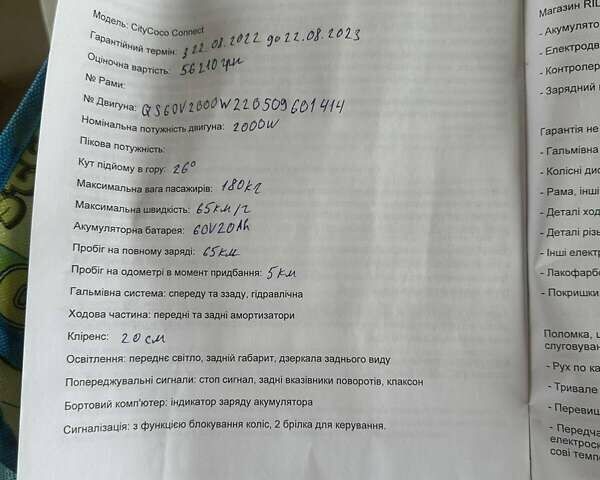 Модель: CityCoco Connect
Гарантійний термін: з 22.08.2022 до 22.08.2023
Оціночна вартість: 56210 грн
№ Рами:
№ Двигуна: QS60V2000W220509601414
Номінальна потужність двигуна: 2000W
Пікова потужність:
Кут підйому в гору: 26°
Максимальна вага пасажирів: 180кг
Максимальна швидкість: 65км/г
Акумуляторна батарея: 60V20Ah
Пробіг на повному заряді: 65км
Пробіг на одометрі в момент придбання: 5км
Гальмівна система: спереду та ззаду, гідравлічна
Ходова частина: передні та задні амортизатори
Кліренс: 20см
Освітлення: переднє світло, задній габарит, дзеркала заднього виду
Попереджувальні сигнали: стоп сигнал, задні вказівники поворотів, клаксон
Бортовий комп'ютер: індикатор заряду акумулятора
Сигналізація: з функцією блокування коліс, 2 брілка для керування.
Магазин RIL
- Акумулято
- Електродв
- Контролер
- Зарядний
Гарантія не
- Гальмівна
- Колісні дис
- Рама, інші
- Деталі ход
- Деталі різь
- Інші електр
- Лакофарбо
- Покришки
Поломка, щ
слуговуван
- Рух по ка
- Тривале
- Перевищ
- Передча
електроси
сові темпе